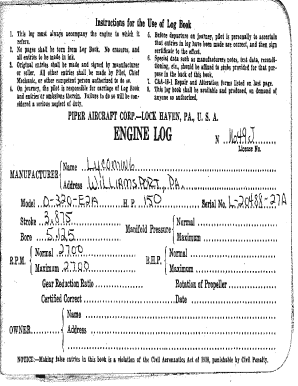 Instructions for the Use of Log Book
1. This log must always accompany the engine to which it refers.
2. No pages shall be torn from Log Book. No erasures, and all entries to be made in ink.
3. Original entries shall be made and signed by manufacturer or seller. All other entries shall be made by Pilot, Chief Mechanic, or other competent person authorized to do so.
4. On journey, the pilot is responsible for carriage of Log Book and entries or omissions therein. Failure to do so will be considered a serious neglect of duty.
6. Before departure on journey, pilot is personally to ascertain that entries in log have been made and are correct, and then sign certificate to the effect.
6. Special data such as manufacturers notes, test data, reconditioning, etc., should be affixed to stubs provided for that purpose in the back of this book.
7. CAA-18-1 Repair and Alteration forms listed on last page.
8. This log book shall be available and produced, on demand of anyone so authorized.
PIPER AIRCRAFT CORP.—LOCK HAVEN, PA., U. S. A.
ENGINE LOG
N
License No.
MANUFACTURER
Name LYCOMING
Address WILLIAMSPORT, PA.
Model O-320-E2A H. P. 150 Serial No. L-20488-27A
Stroke 3.875
Bore 5.125
Manifold Pressure
Normal
Maximum
R.P.M.
Normal 2700
Maximum 2700
B.H.P.
Normal
Maximum
Gear Reduction Ratio Rotation of Propeller
Certified Correct Date
OWNER
Name
Address
NOTICE:—Making false entries in this book is a violation of the Civil Aeronautics Act of 1938, punishable by Civil Penalty.